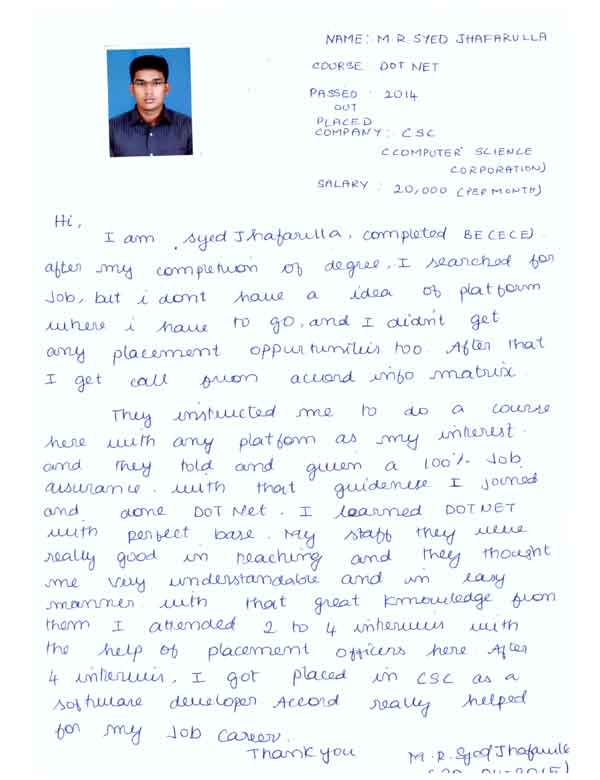 NAME: M.R SYED JHAFARULLA
COURSE: DOT NET
PASSED : 2014
OUT
PLACED
COMPANY: CSC
(COMPUTER SCIENCE
CORPORATION)
SALARY : 20,000 (PER MONTH)
Hi,
I am syed Jhafarulla, completed BE(ECE).
after my completion of degree, I searched for
Job, but i dont have a idea of platform
where i have to go, and I didn't get
any placement oppurtunities too. After that
I get call from accord info matrix.
They instructed me to do a course
here with any platfom as my interest.
and they told and given a 100% Job
assurance. with that guidence I joined
and done DOT Net. I learned DOT NET
with perfect base. My staff they were
really good in teaching and they thought
me very understandable and in easy
manner. with that great knowledge from
them I attended 2 to 4 interviws with
the help of placement officers here. After
4 interviws, I got placed in CSC as a
software developer. Accord really helped
for my Job career.
Thank you
M.R.Syed Jhafarulla